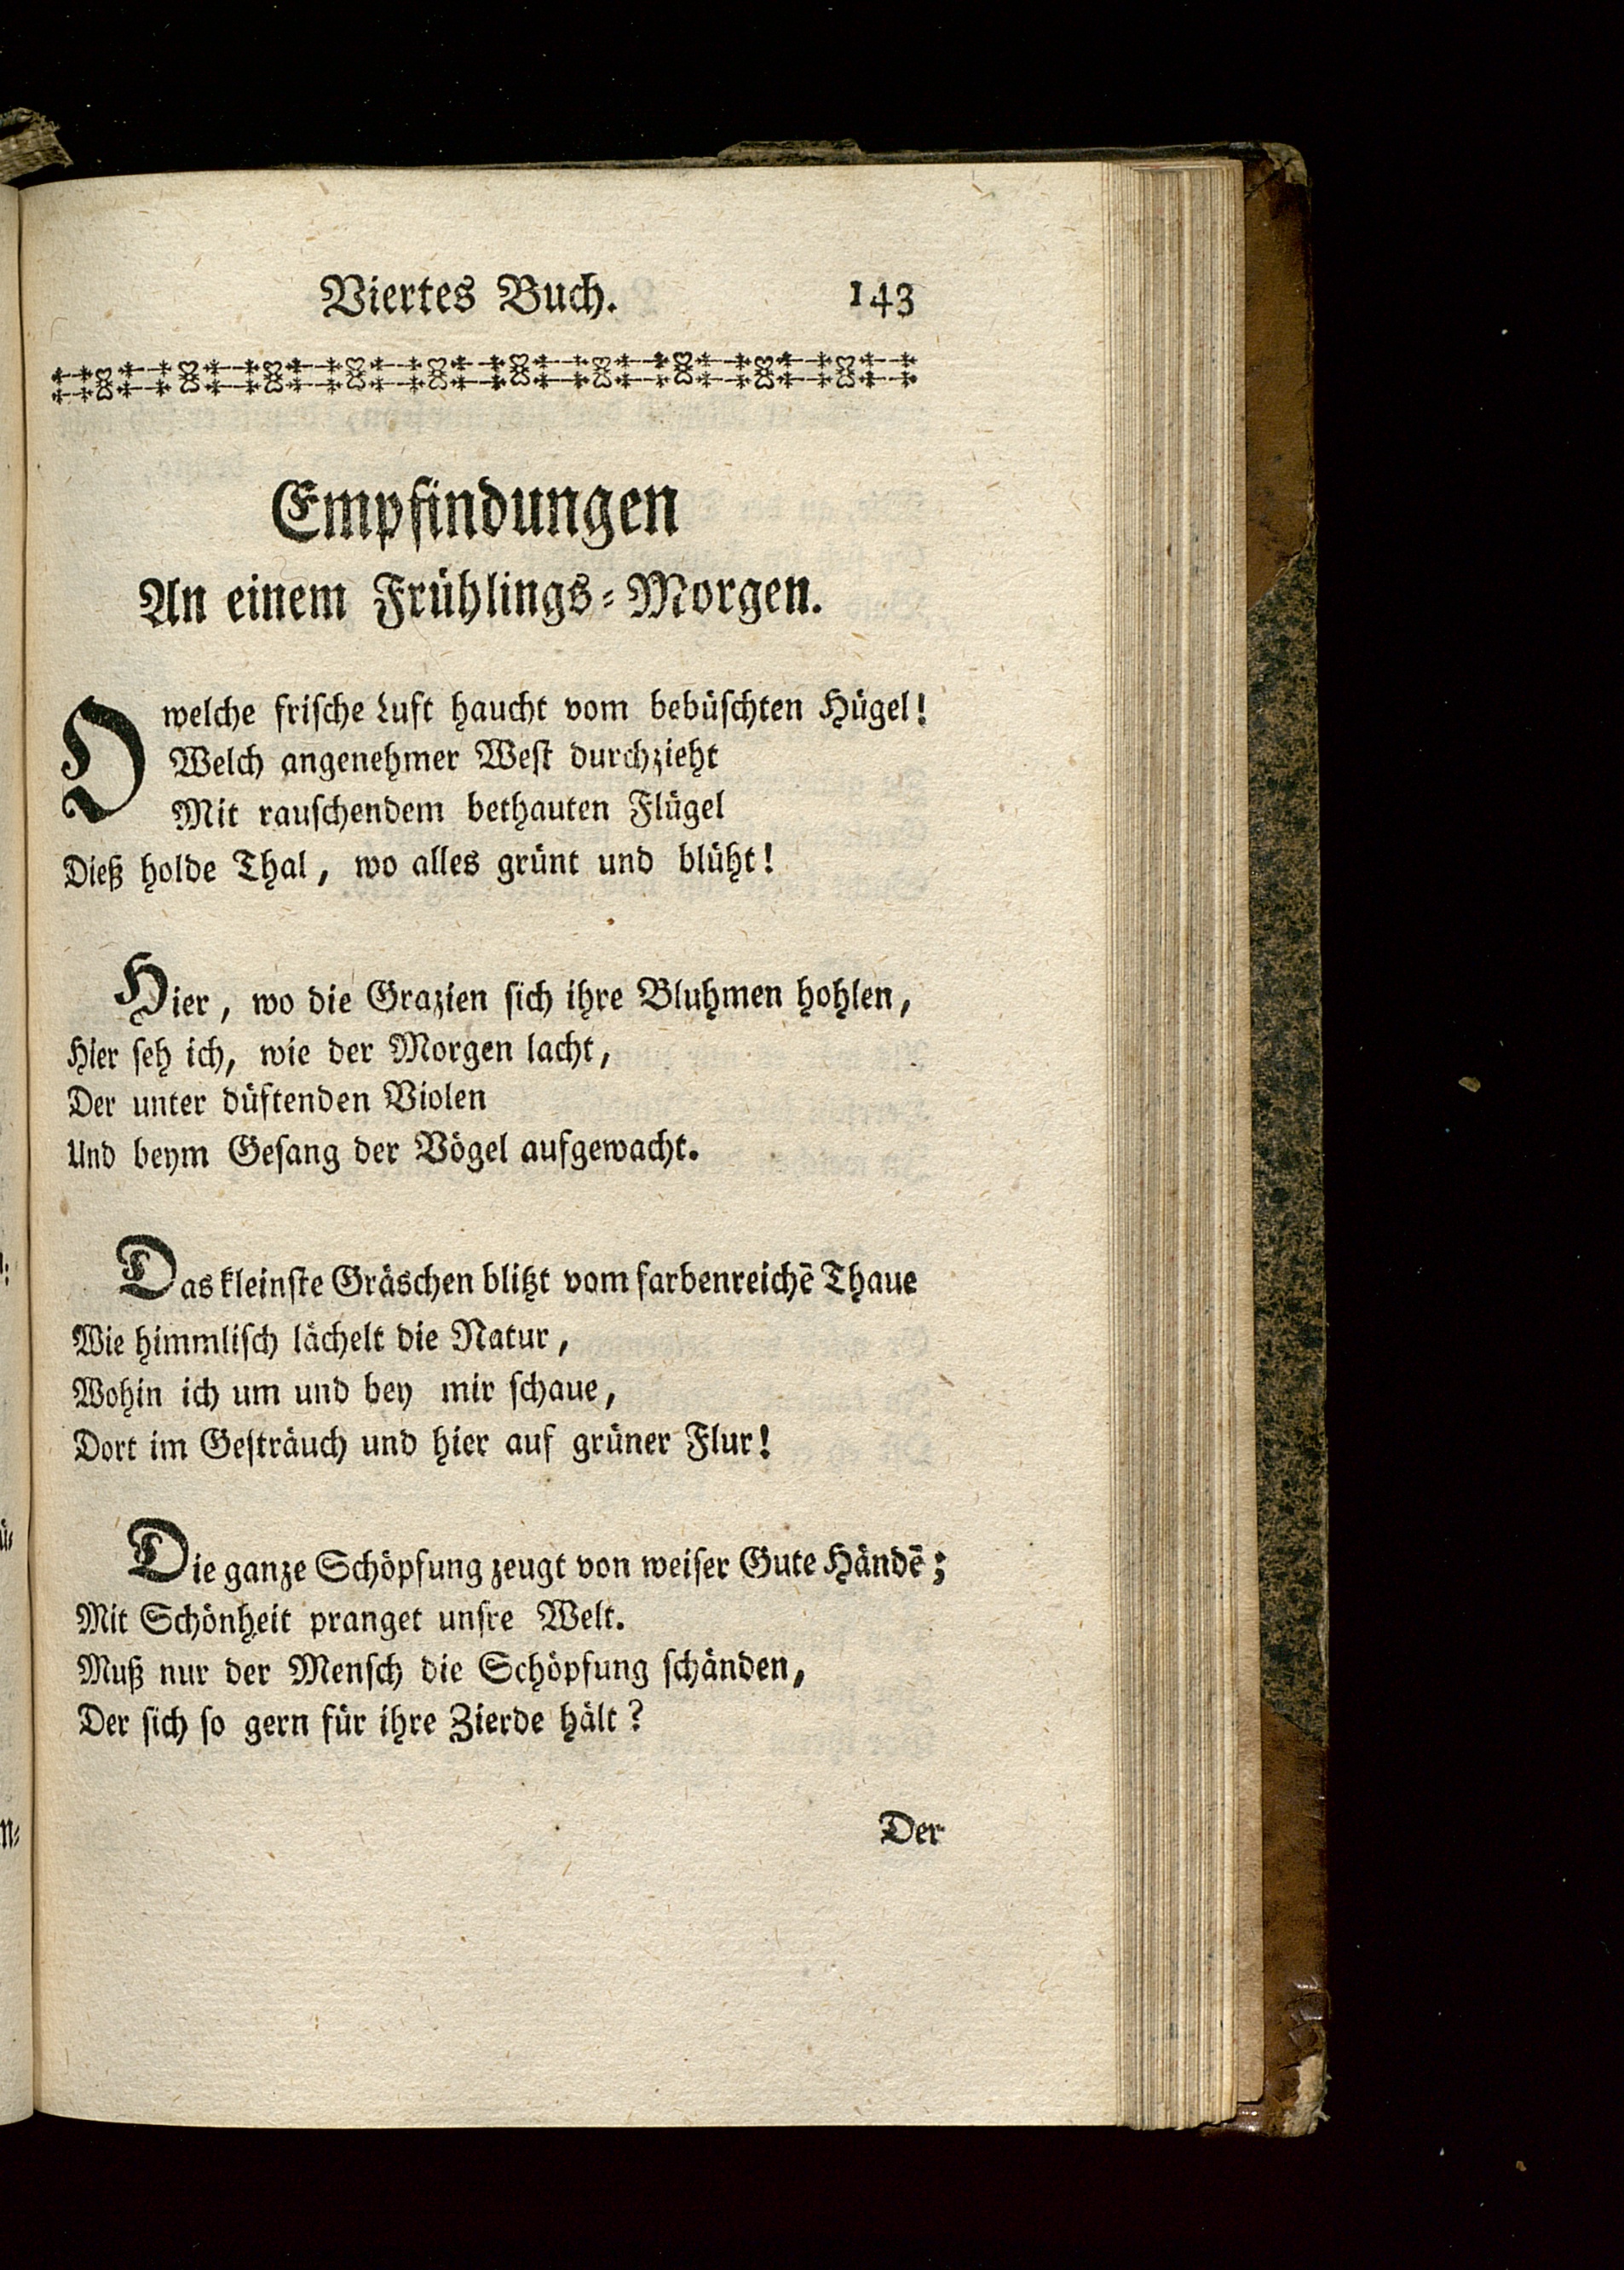 Viertes Buch. 143
Empfindungen
An einem Frühlings-Morgen.
O welche frische Luft haucht vom bebüschten Hügel!
Welch angenehmer West durchzieht
Mit rauschendem bethauten Flügel
Dieß holde Thal, wo alles grünt und blüht!
Hier, wo die Grazien sich ihre Bluhmen hohlen,
Hier seh ich, wie der Morgen lacht,
Der unter düftenden Violen
Und beym Gesang der Vögel aufgewacht.
Das kleinste Gräschen blitzt vom farbenreichē Thaue
Wie himmlisch lächelt die Natur,
Wohin ich um und bey mir schaue,
Dort im Gesträuch und hier auf grüner Flur!
Die ganze Schöpfung zeugt von weiser Gute Händē;
Mit Schönheit pranget unsre Welt.
Muß nur der Mensch die Schöpfung schänden,
Der sich so gern für ihre Zierde hält?
Der